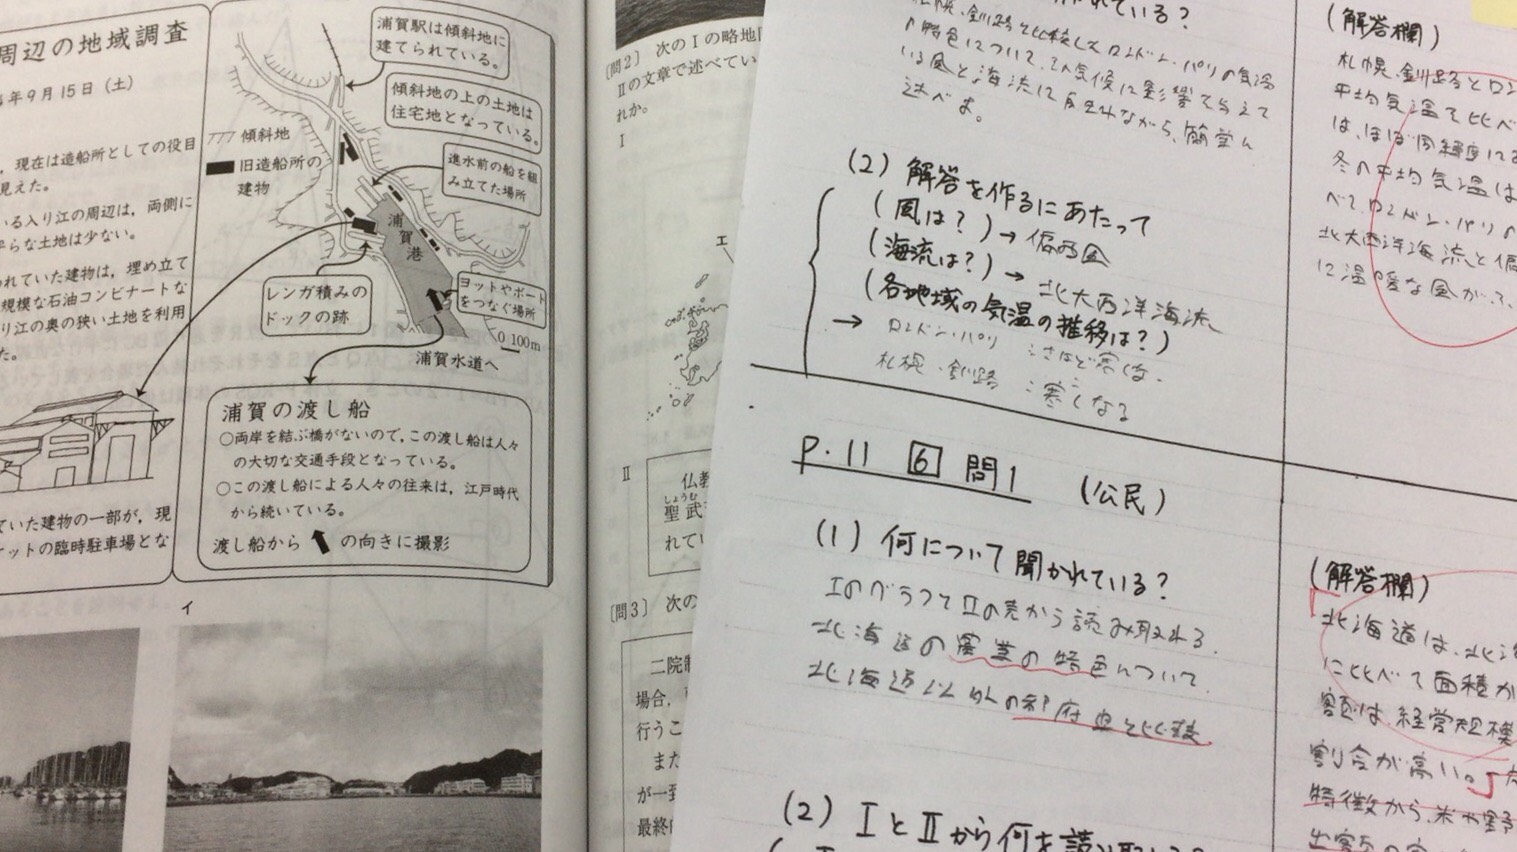 周辺の地域調査
年9月15日(土)
，現在は造船所としての役目
見えた。
いる入り江の周辺は，両側に
平らな土地は少ない。
われていた建物は，埋め立て
規模な石油コンビナートな
り江の奥の狭い土地を利用
た。
ていた建物の一部が，現
ケットの臨時駐車場とな
浦賀駅は傾斜地に
建てられている。
傾斜地の上の土地は
住宅地となっている。
傾斜地
旧造船所の
建物
進水前の船を組
み立てた場所
浦賀港
レンガ積みの
ドックの跡
ヨットやボート
をつなぐ場所
0 100m
浦賀水道へ
浦賀の渡し船
○両岸を結ぶ橋がないので，この渡し船は人々
の大切な交通手段となっている。
○この渡し船による人々の往来は，江戸時代
から続いている。
渡し船から の向きに撮影
イ
〔問2〕 次のⅠの略地
Ⅱの文章で述べてい
れか。
Ⅰ
エ
Ⅱ
仏教
しょうむ
聖武
れてい
〔問3〕 次の
二院制
場合，
行うこ
また
が一致
最終
れている?
札幌・釧路と比較してロンドン・パリの気温
の特色について、その気候に影響を与えて
いる風と海流に
述べよ。
(2) 解答を作るにあたって
(風は?)→偏西風
(海流は?)→北大西洋海流
(各地域の気温の推移は?)
→ ロンドン・パリ :さほど寒く
札幌・釧路 :寒くなる
P.11 6 問1 (公民)
(1) 何について聞かれている?
ⅠのグラフとⅡの表から読み取れる、
北海道の農業の特色について、
北海道以外の都府県と比較
(2) ⅠとⅡから何を読み取
(解答欄)
札幌、釧路とロン
平均気温で比べ
は、ほぼ同緯度に
冬の平均気温は
べて、ロンドン・パリの
北大西洋海流と偏
に温暖な風が
(解答欄)
北海道は、北海
に比べて面積が
額は、経営規模
割合が高い。
特徴から、米や野